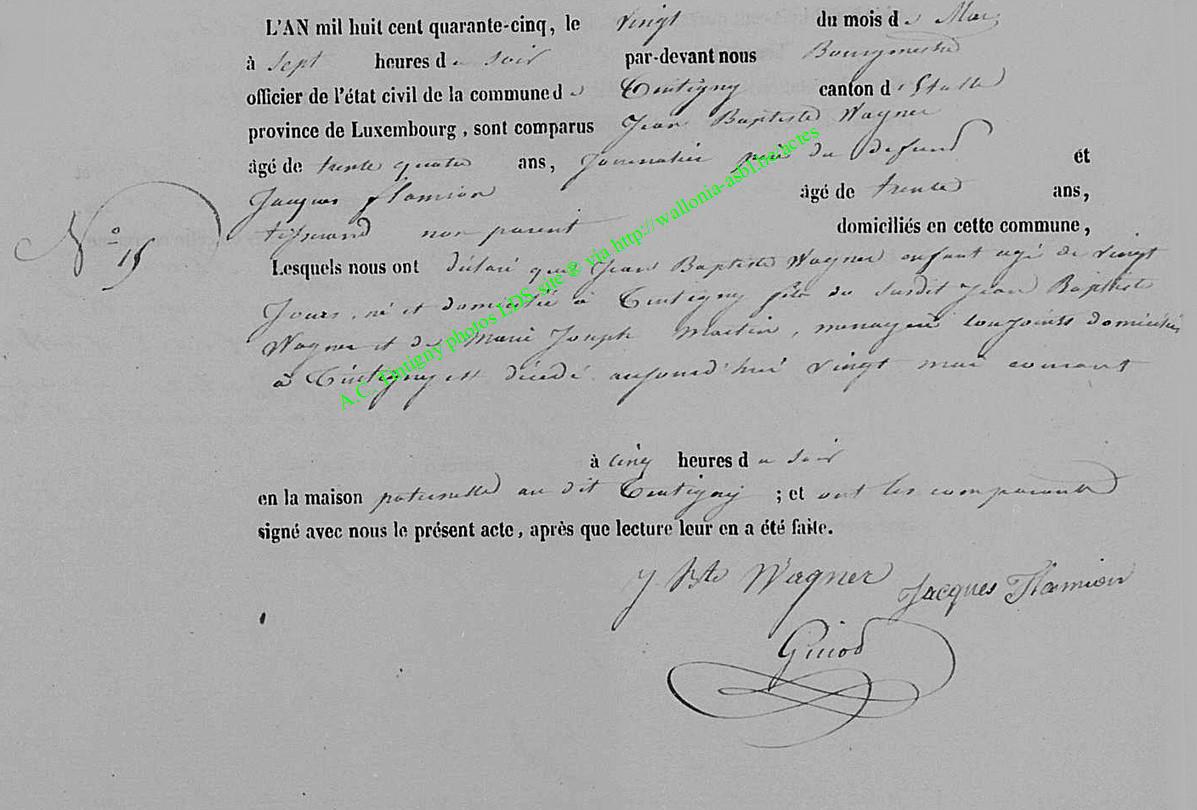 L'AN mil huit cent quarante-cinq, le vingt du mois de Mai
à sept heures du soir par-devant nous Bourgmestre
officier de l'état civil de la commune de Tintigny canton d'Etalle
province de Luxembourg, sont comparus Jean Baptiste Wagner
âgé de trente quatre ans, Journalier père du defunt et
Jacques flamion âgé de trente ans,
tisserand non parent domiciliés en cette commune,
N° 15
Lesquels nous ont déclaré que Jean Baptiste Wagner enfant agé de vingt
Jours, né et domicilié à Tintigny fils du susdit Jean Baptiste
Wagner et de Marie Joseph Martin, menagere conjoints domiciliés
à Tintigny est décédé aujourd'hui vingt mai courant
à cinq heures du soir
en la maison paternelle au dit Tintigny ; et ont les comparants
signé avec nous le présent acte, après que lecture leur en a été faite.
J Bte Wagner Jacques Flamion
A.C. Tintigny photos LDS site @ via http://wallonia-asbl.be/actes